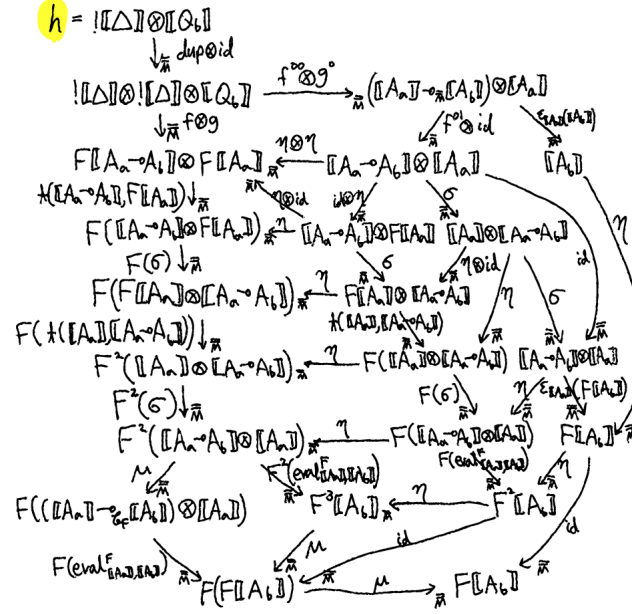 h = !⟦△⟧⊗⟦Q_b⟧
↓_M̿ dup⊗id
!⟦△⟧⊗!⟦△⟧⊗⟦Q_b⟧ —f^∞⊗g°→_M̿ (⟦A_a⟧⊸_M̿⟦A_b⟧)⊗⟦A_a⟧
↓_M̿ f⊗g f^01⊗id ε_⟦A_a⟧(⟦A_b⟧)
F⟦A_a⊸A_b⟧⊗F⟦A_a⟧ _M̿←η⊗η ⟦A_a⊸A_b⟧⊗⟦A_a⟧ ⟦A_b⟧
t(⟦A_a⊸A_b⟧,F⟦A_a⟧)↓_M̿ η⊗id id⊗η σ η
F(⟦A_a⊸A_b⟧⊗F⟦A_a⟧) _M̿←η ⟦A_a⊸A_b⟧⊗F⟦A_a⟧ ⟦A_a⟧⊗⟦A_a⊸A_b⟧ id
F(σ)↓_M̿ σ η⊗id
F(F⟦A_a⟧⊗⟦A_a⊸A_b⟧) _M̿←η F⟦A_a⟧⊗⟦A_a⊸A_b⟧ η σ
F(t(⟦A_a⟧,⟦A_a⊸A_b⟧))↓_M̿ t(⟦A_a⟧,⟦A_a⊸A_b⟧)
F²(⟦A_a⟧⊗⟦A_a⊸A_b⟧) _M̿←η F(⟦A_a⟧⊗⟦A_a⊸A_b⟧) ⟦A_a⊸A_b⟧⊗⟦A_a⟧
F²(σ)↓_M̿ F(σ) η ε_⟦A_a⟧(F⟦A_b⟧)
F²(⟦A_a⊸A_b⟧⊗⟦A_a⟧) _M̿←η F(⟦A_a⊸A_b⟧⊗⟦A_a⟧) F⟦A_b⟧
μ F²(eval^F_⟦A_a⟧,⟦A_b⟧) F(eval^F_⟦A_a⟧,⟦A_b⟧) η
F((⟦A_a⟧⊸_𝒞F⟦A_b⟧)⊗⟦A_a⟧) F³⟦A_b⟧ _M̿←η F²⟦A_b⟧ id
F(eval^F_⟦A_a⟧,⟦A_b⟧) μ id
F(F⟦A_b⟧) —μ→_M̿ F⟦A_b⟧